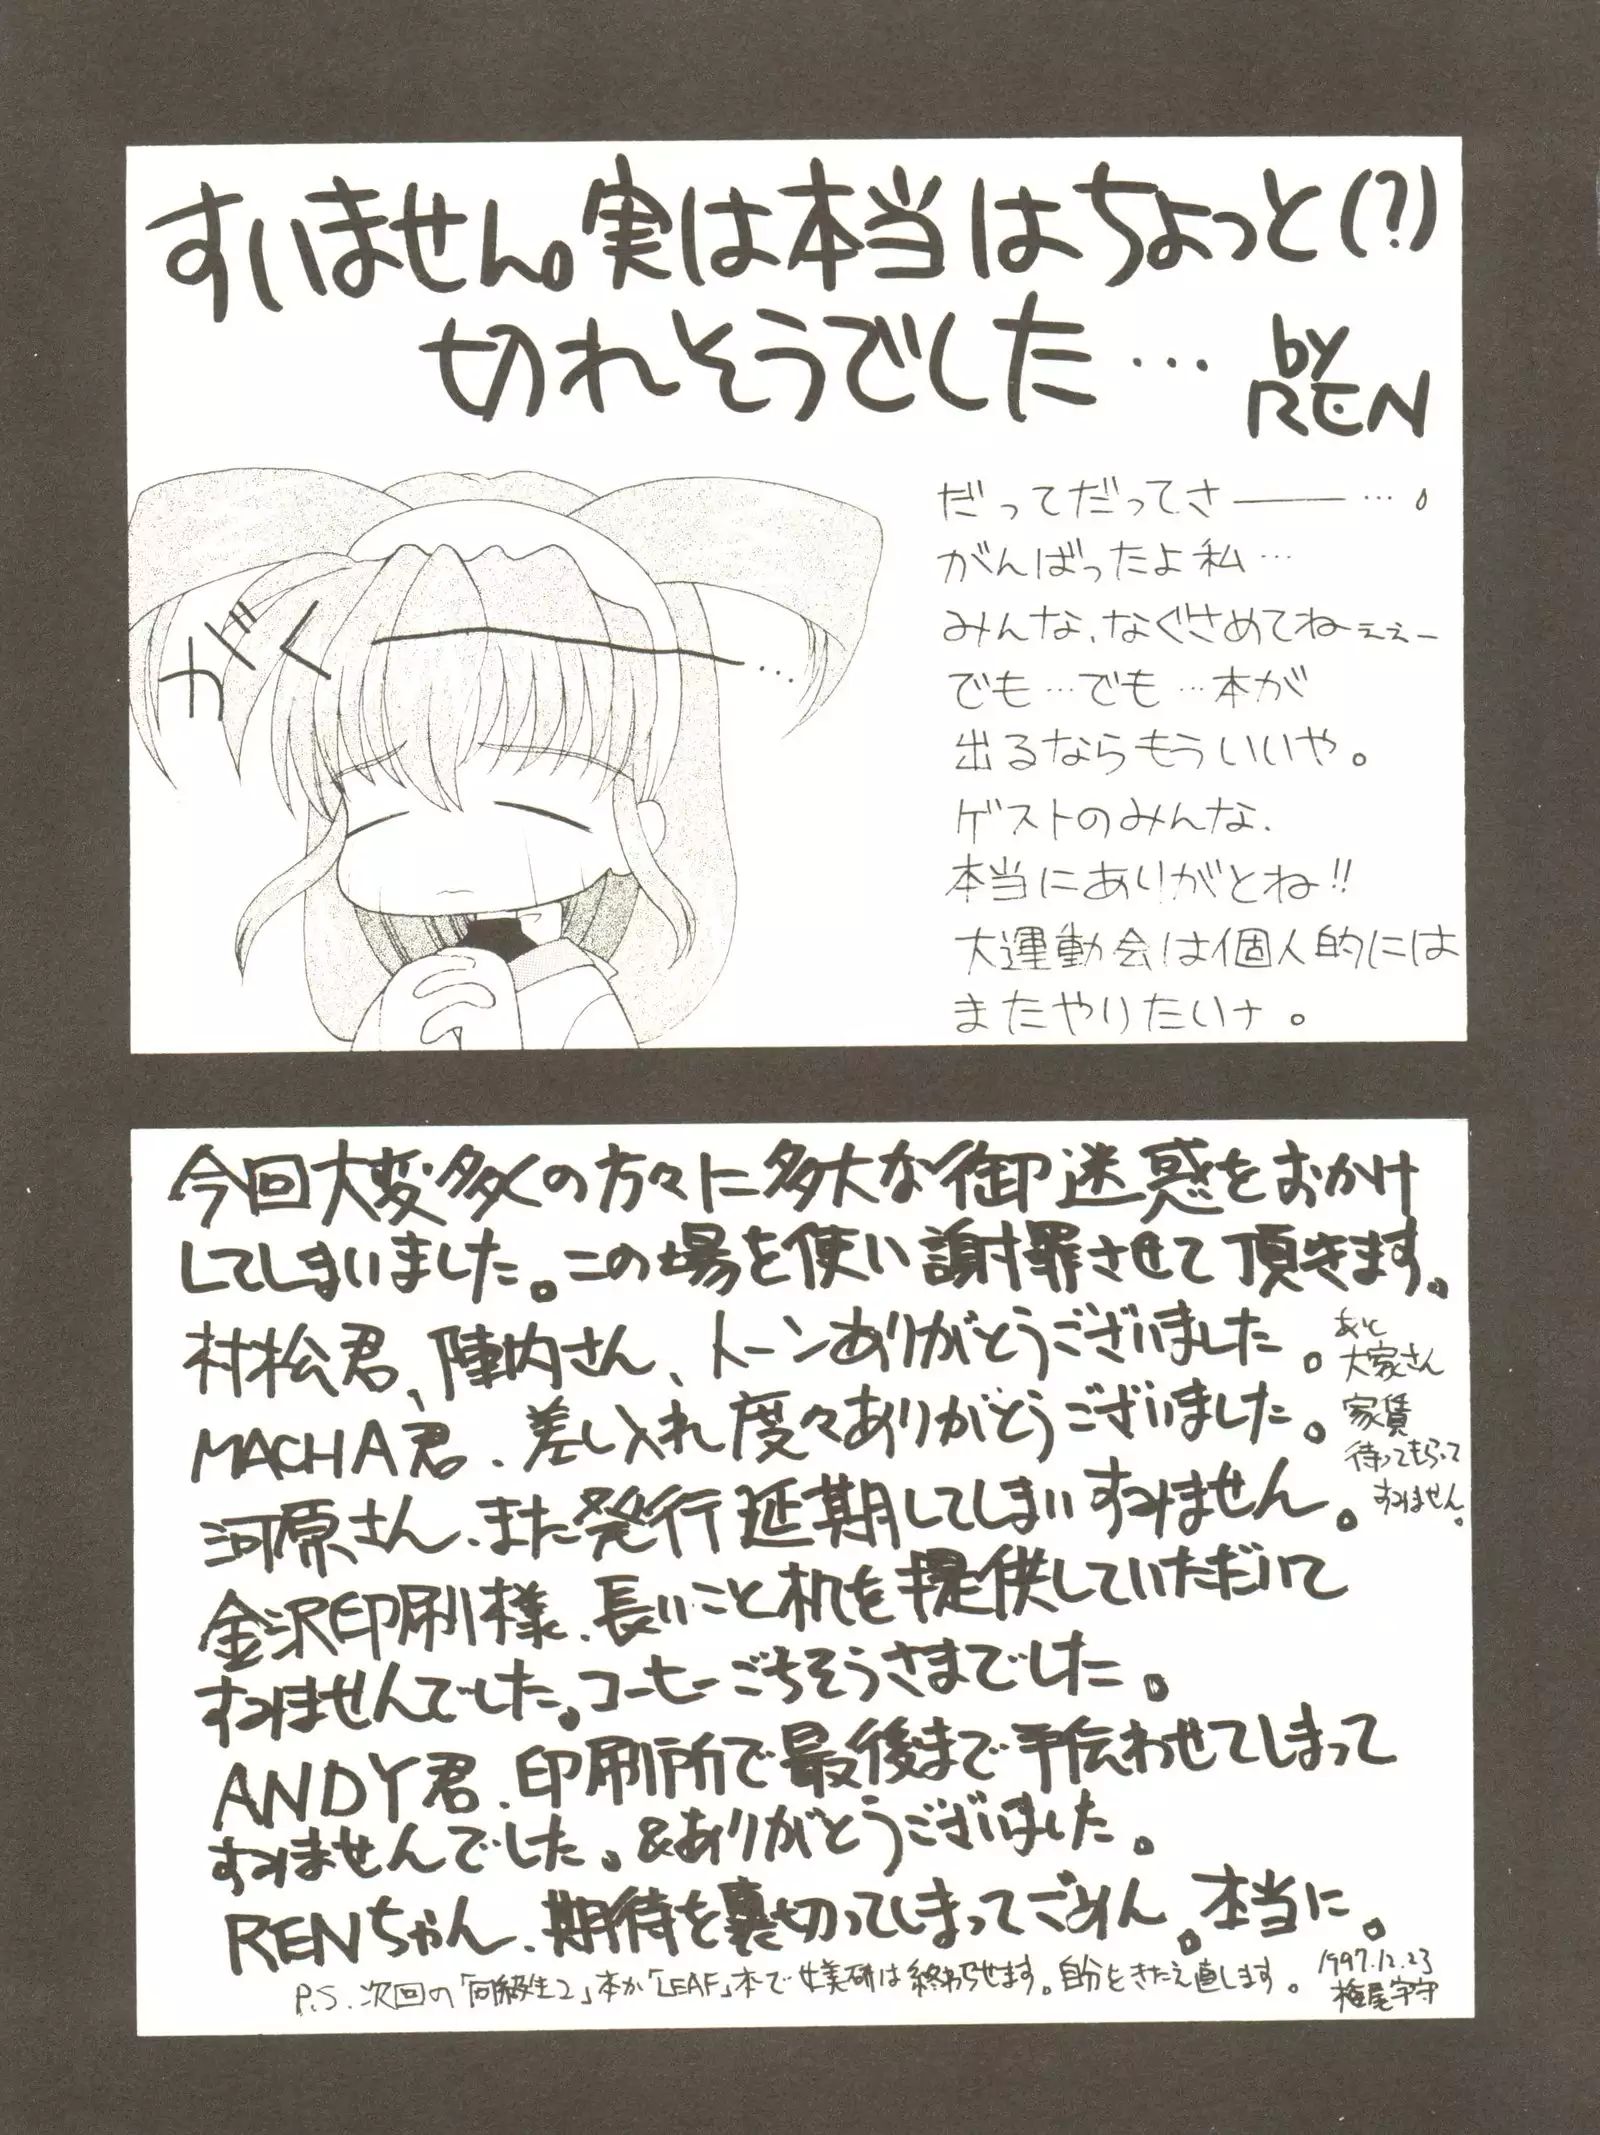 すいません。実は本当はちょっと(?)
切れそうでした…
by
REN
ガく
…
だってだってさー…。
がんばったよ私…
みんな、なぐさめてねぇぇー
でも…でも…本が
出るならもういいや。
ゲストのみんな、
本当にありがとね!!
大運動会は個人的には
またやりたいナ。
今回大変多くの方々に多大な御迷惑をおかけ
してしまいました。この場を使い謝罪させて頂きます。
村松君、陣内さん、トーンありがとうございました。
MACHA君、差し入れ度々ありがとうございました。
あと
大家さん
家賃
待ってもらって
すみません。
河原さん、また発行延期してしまいすみません。
金沢印刷様、長いこと机を提供していただいて
すみませんでした。コーヒーごちそうさまでした。
ANDY君、印刷所で最後まで手伝わせてしまって
すみませんでした。&ありがとうございました。
RENちゃん、期待を裏切ってしまってごめん。本当に。
P.S.次回の「同級生2」本か「LEAF」本で女美研は終わらせます。自分をきたえ直します。
1997.12.23
梅尾宇守